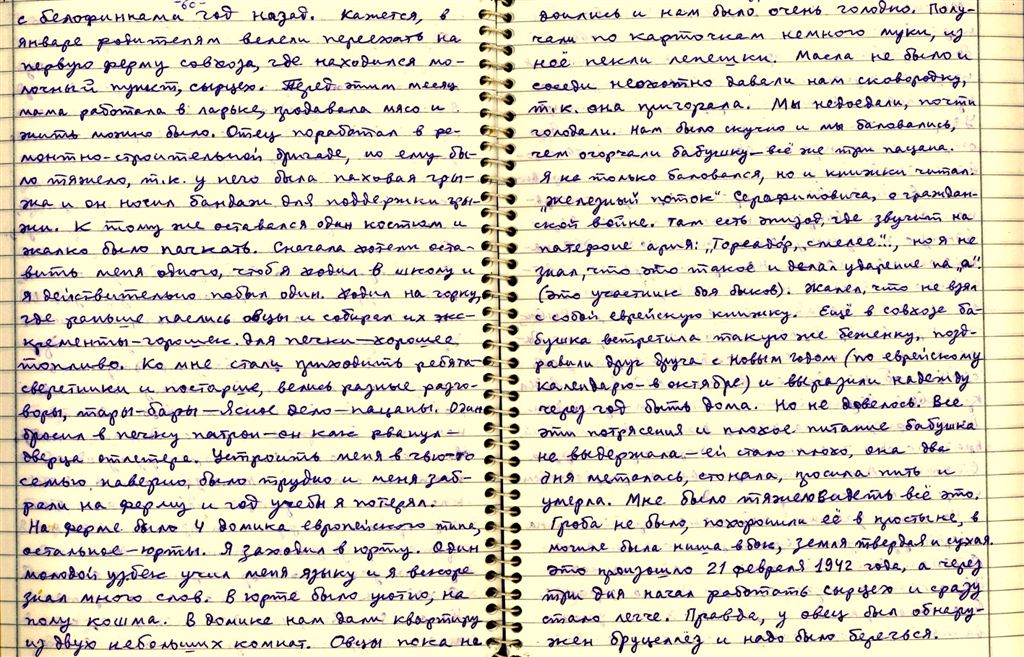 -60-
с белофинками год назад. Кажется, в
январе родителям велели переехать на
первую ферму совхоза, где находился мо-
лочный пункт, сырцех. Перед этим месяц
мама работала в ларьке, продавала мясо и
жить можно было. Отец поработал в ре-
монтно-строительной бригаде, но ему бы-
ло тяжело, т.к. у него была паховая гры-
жа и он носил бандаж для поддержки гры-
жи. К тому же оставался один костюм и
жалко было пачкать. Сначала хотели оста-
вить меня одного, чтоб я ходил в школу и
я действительно побыл один. Ходил на горку,
где раньше паслись овцы и собирал их экс-
кременты-горошек. Для печки-хорошее
топливо. Ко мне стали приходить ребята-
сверстники и постарше, велись разные разго-
воры, тары-бары-Ясное дело-пацаны. Один
бросил в печку патрон-он как рванул-
дверца отлетела. Устроить меня в чью-то
семью, наверно, было трудно и меня заб-
рали на ферму и год учебы я потерял.
На ферме было 4 домика европейского типа,
остальное-юрты. Я заходил в юрту. Один
молодой узбек учил меня языку и я вскоре
знал много слов. В юрте было уютно, на
полу кошма. В домике нам дали квартиру
из двух небольших комнат. Овцы пока не
доились и нам было очень голодно. Полу-
чали по карточкам немного муки, из
неё пекли лепешки. Масла не было и
соседи неохотно давали нам сковородку,
т.к. она пригорала. Мы недоедали, почти
голодали. Нам было скучно и мы баловались,
чем огорчали бабушку-всё же три пацана.
Я не только баловался, но и книжки читал:
„Железный поток" Серафимовича, о граждан-
ской войне. Там есть эпизод, где звучит на
патефоне ария: „Тореадор, смелее"., но я не
знал, что это такое и делал ударение на „а".
(это участник боя быков). Жалел, что не взял
с собой еврейскую книжку. Ещё в совхозе ба-
бушка встретила такую же беженку, позд-
равили друг друга с новым годом (по еврейскому
календарю-в октябре) и выразили надежду
через год быть дома. Но не довелось. Все
эти потрясения и плохое питание бабушка
не выдержала-ей стало плохо, она два
дня металась, стонала, просила пить и
умерла. Мне было тяжело видеть всё это.
Гроба не было, похоронили её в простыне, в
могиле была ниша вбок, земля твердая и сухая.
Это произошло 21 февраля 1942 года, а через
три дня начал работать сырцех и сразу
стало легче. Правда, у овец был обнару-
жен бруцеллёз и надо было беречься.